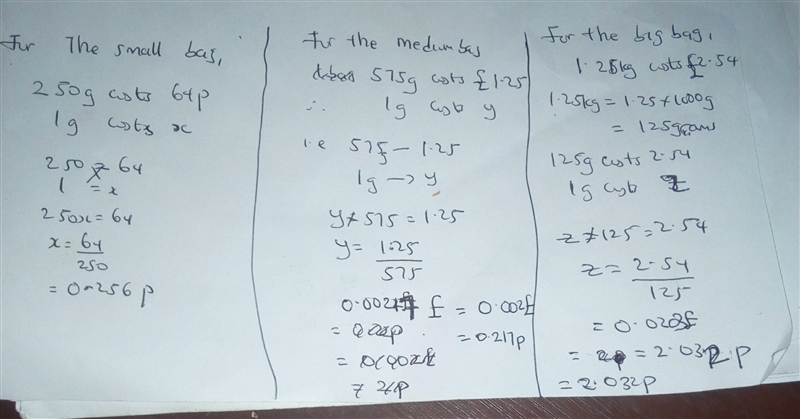 For The small bag,
250g costs 64p
1g costs x
250 - 64
1 = x
250x = 64
x = 64
250
= 0.256 p
For the medium bag
575g costs £1.25
∴ 1g cost y
i.e 575 - 1.25
1g → y
y × 575 = 1.25
y = 1.25
575
£ = 0.002£
= p = 0.217p
=
= p
For the big bag,
1.25kg costs £2.54
1.25kg = 1.25 × 1000g
= 125grams
125g costs 2.54
1g cost z
z × 125 = 2.54
z = 2.54
125
= 0.0203£
= = 2.032 p
= 2.032p